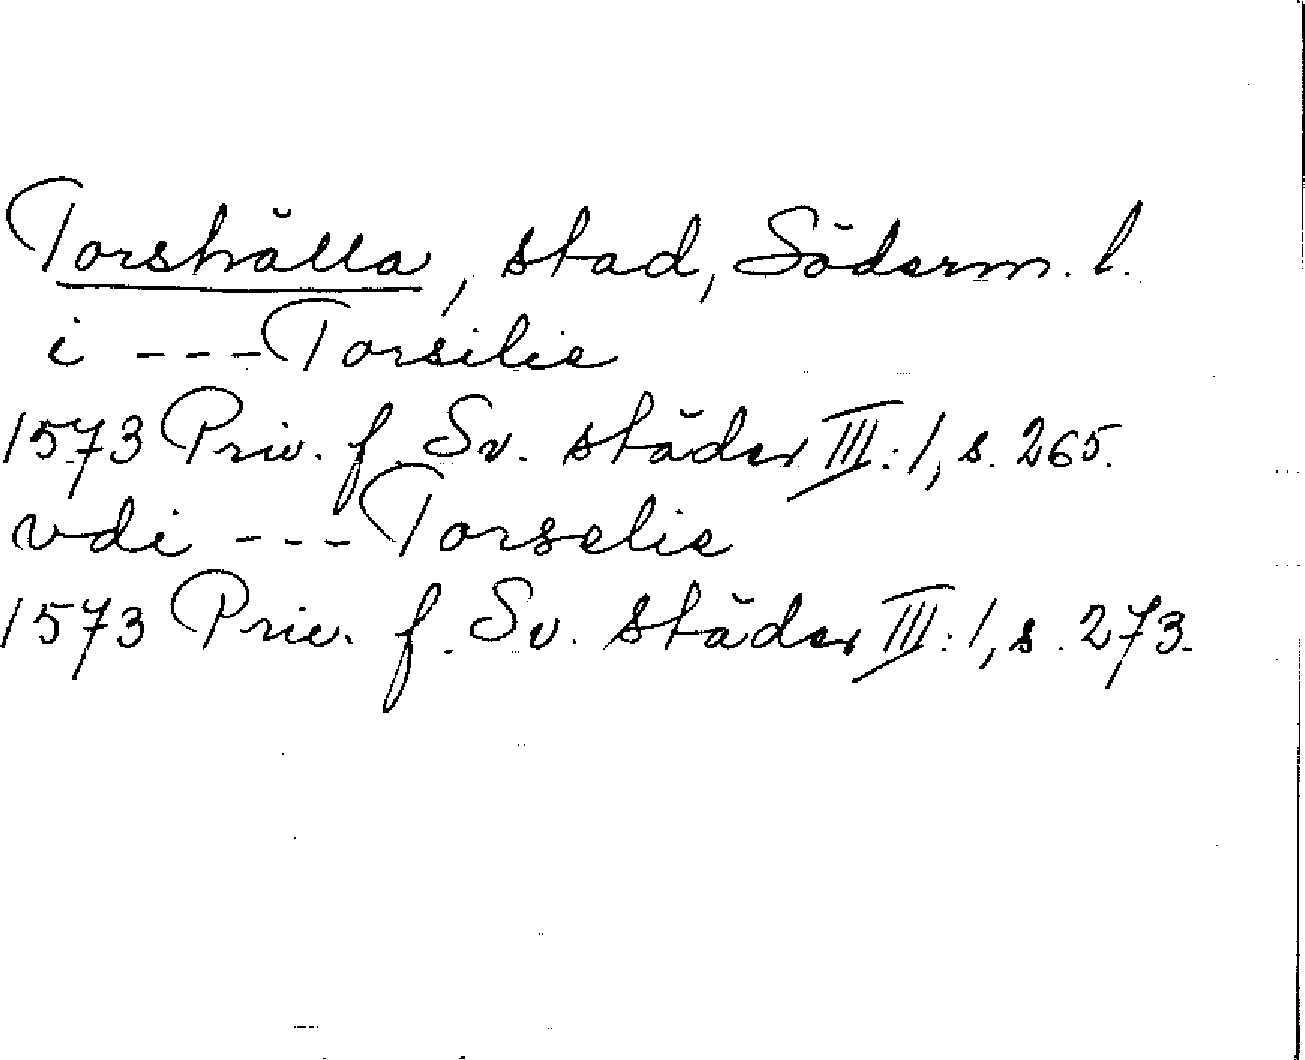 Torshälla, stad, Söderm. l.
i --- Torsilie
1573 Priv. f. Sv. städer III:1, s. 265.
vdi --- Torselie
1573 Priv. f. Sv. städer III:1, s. 273.